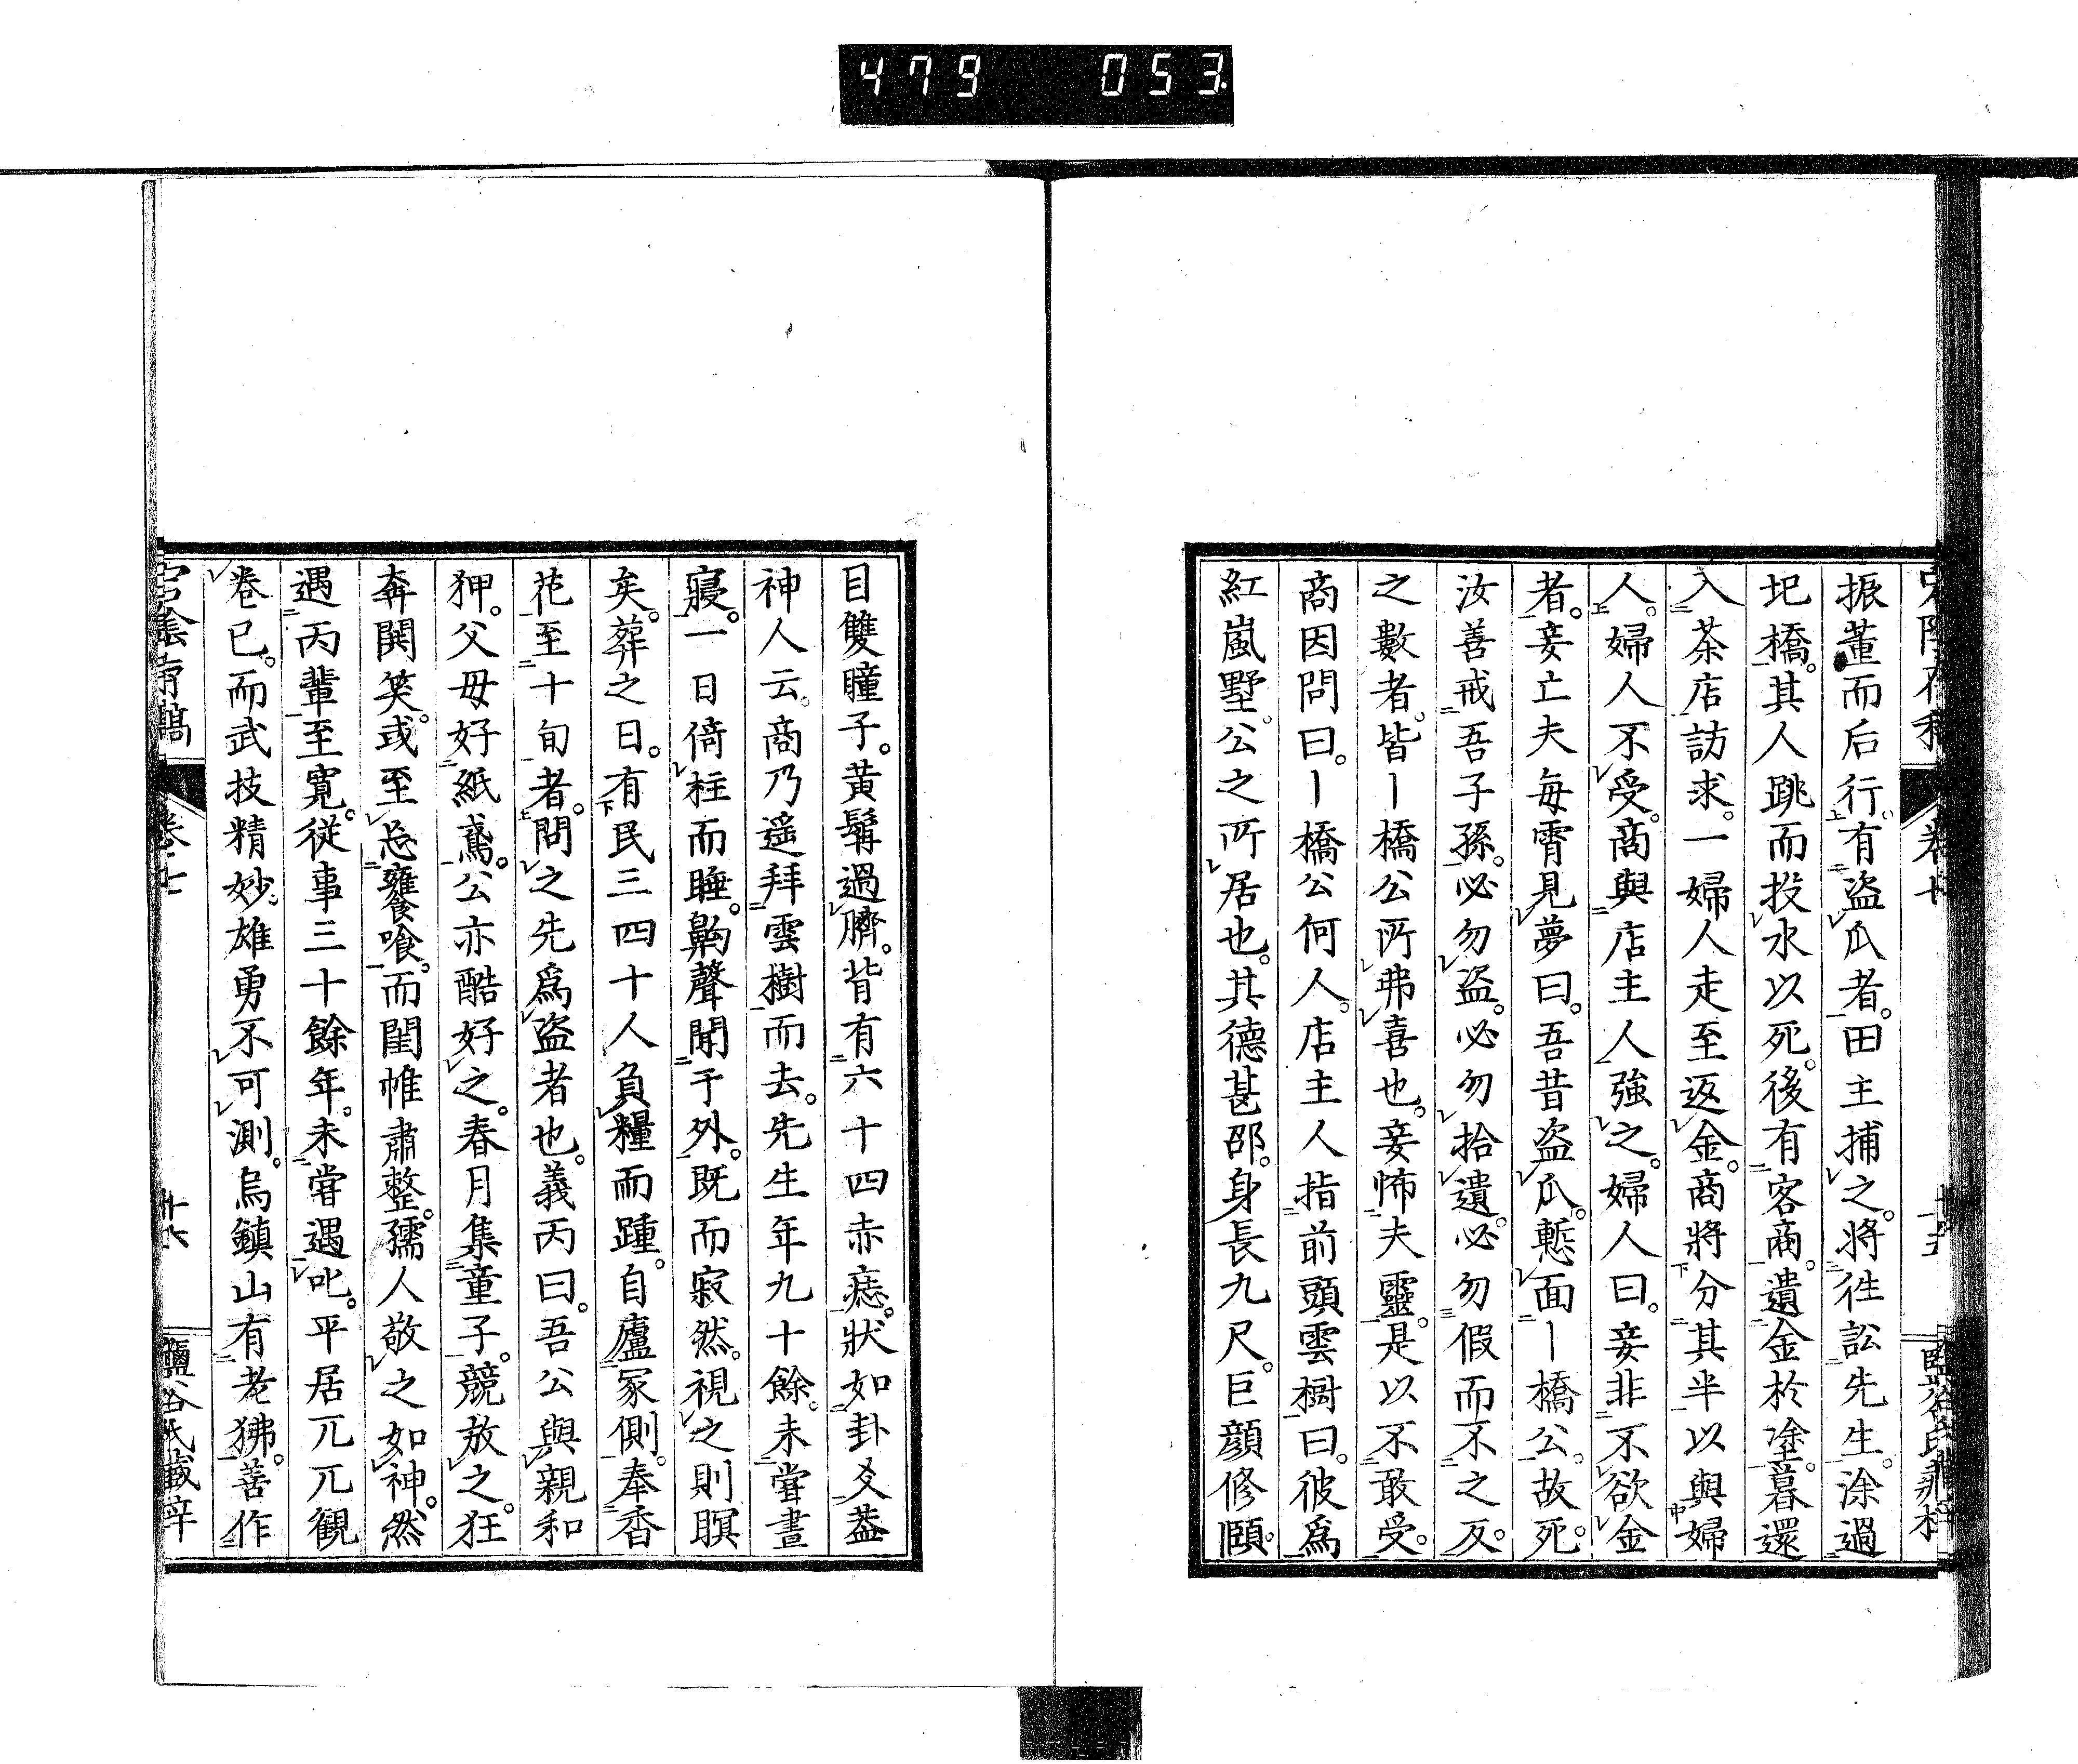 479 053
振董而后行。有盗瓜者。田主捕之。將往訟先生。涂過
圯橋。其人跳而投水以死。後有客商。遺金於塗。暮還
入茶店訪求。一婦人走至返金。商將分其半以與婦
人。婦人不受。商與店主人強之。婦人曰。妾非不欲金
者。妾亡夫毎霄見夢曰。吾昔盗瓜。慙面丨橋公。故死。
汝善戒吾子孫。必勿盗。必勿拾遺。必勿假而不之反。
之數者。皆丨橋公所弗喜也。妾怖夫靈。是以不敢受。
商因問曰。丨橋公何人。店主人指前頭雲樹曰。彼爲
紅嵐墅。公之所居也。其德甚邵。身長九尺。巨顔修頤。
目雙瞳子。黄髯過臍。背有六十四赤痣。狀如卦爻。葢
神人云。商乃遥拜雲樹而去。先生年九十餘。未甞晝
寢。一日倚柱而睡。鼾聲聞于外。既而寂然。視之則瞑
矣。葬之日。有民三四十人負糧而踵。自廬冢側。奉香
花至十旬者。問之先爲盗者也。義丙曰。吾公與親和
狎。父母好紙鳶。公亦酷好之。春月集童子。競放之。狂
奔鬨笑。或至忘饔飧。而閨帷肅整。孺人敬之如神。然
遇丙輩至寛。從事三十餘年。未甞遇叱。平居兀兀観
巻已。而武技精妙。雄勇不可測。烏鎮山有老狒。善作
卷七